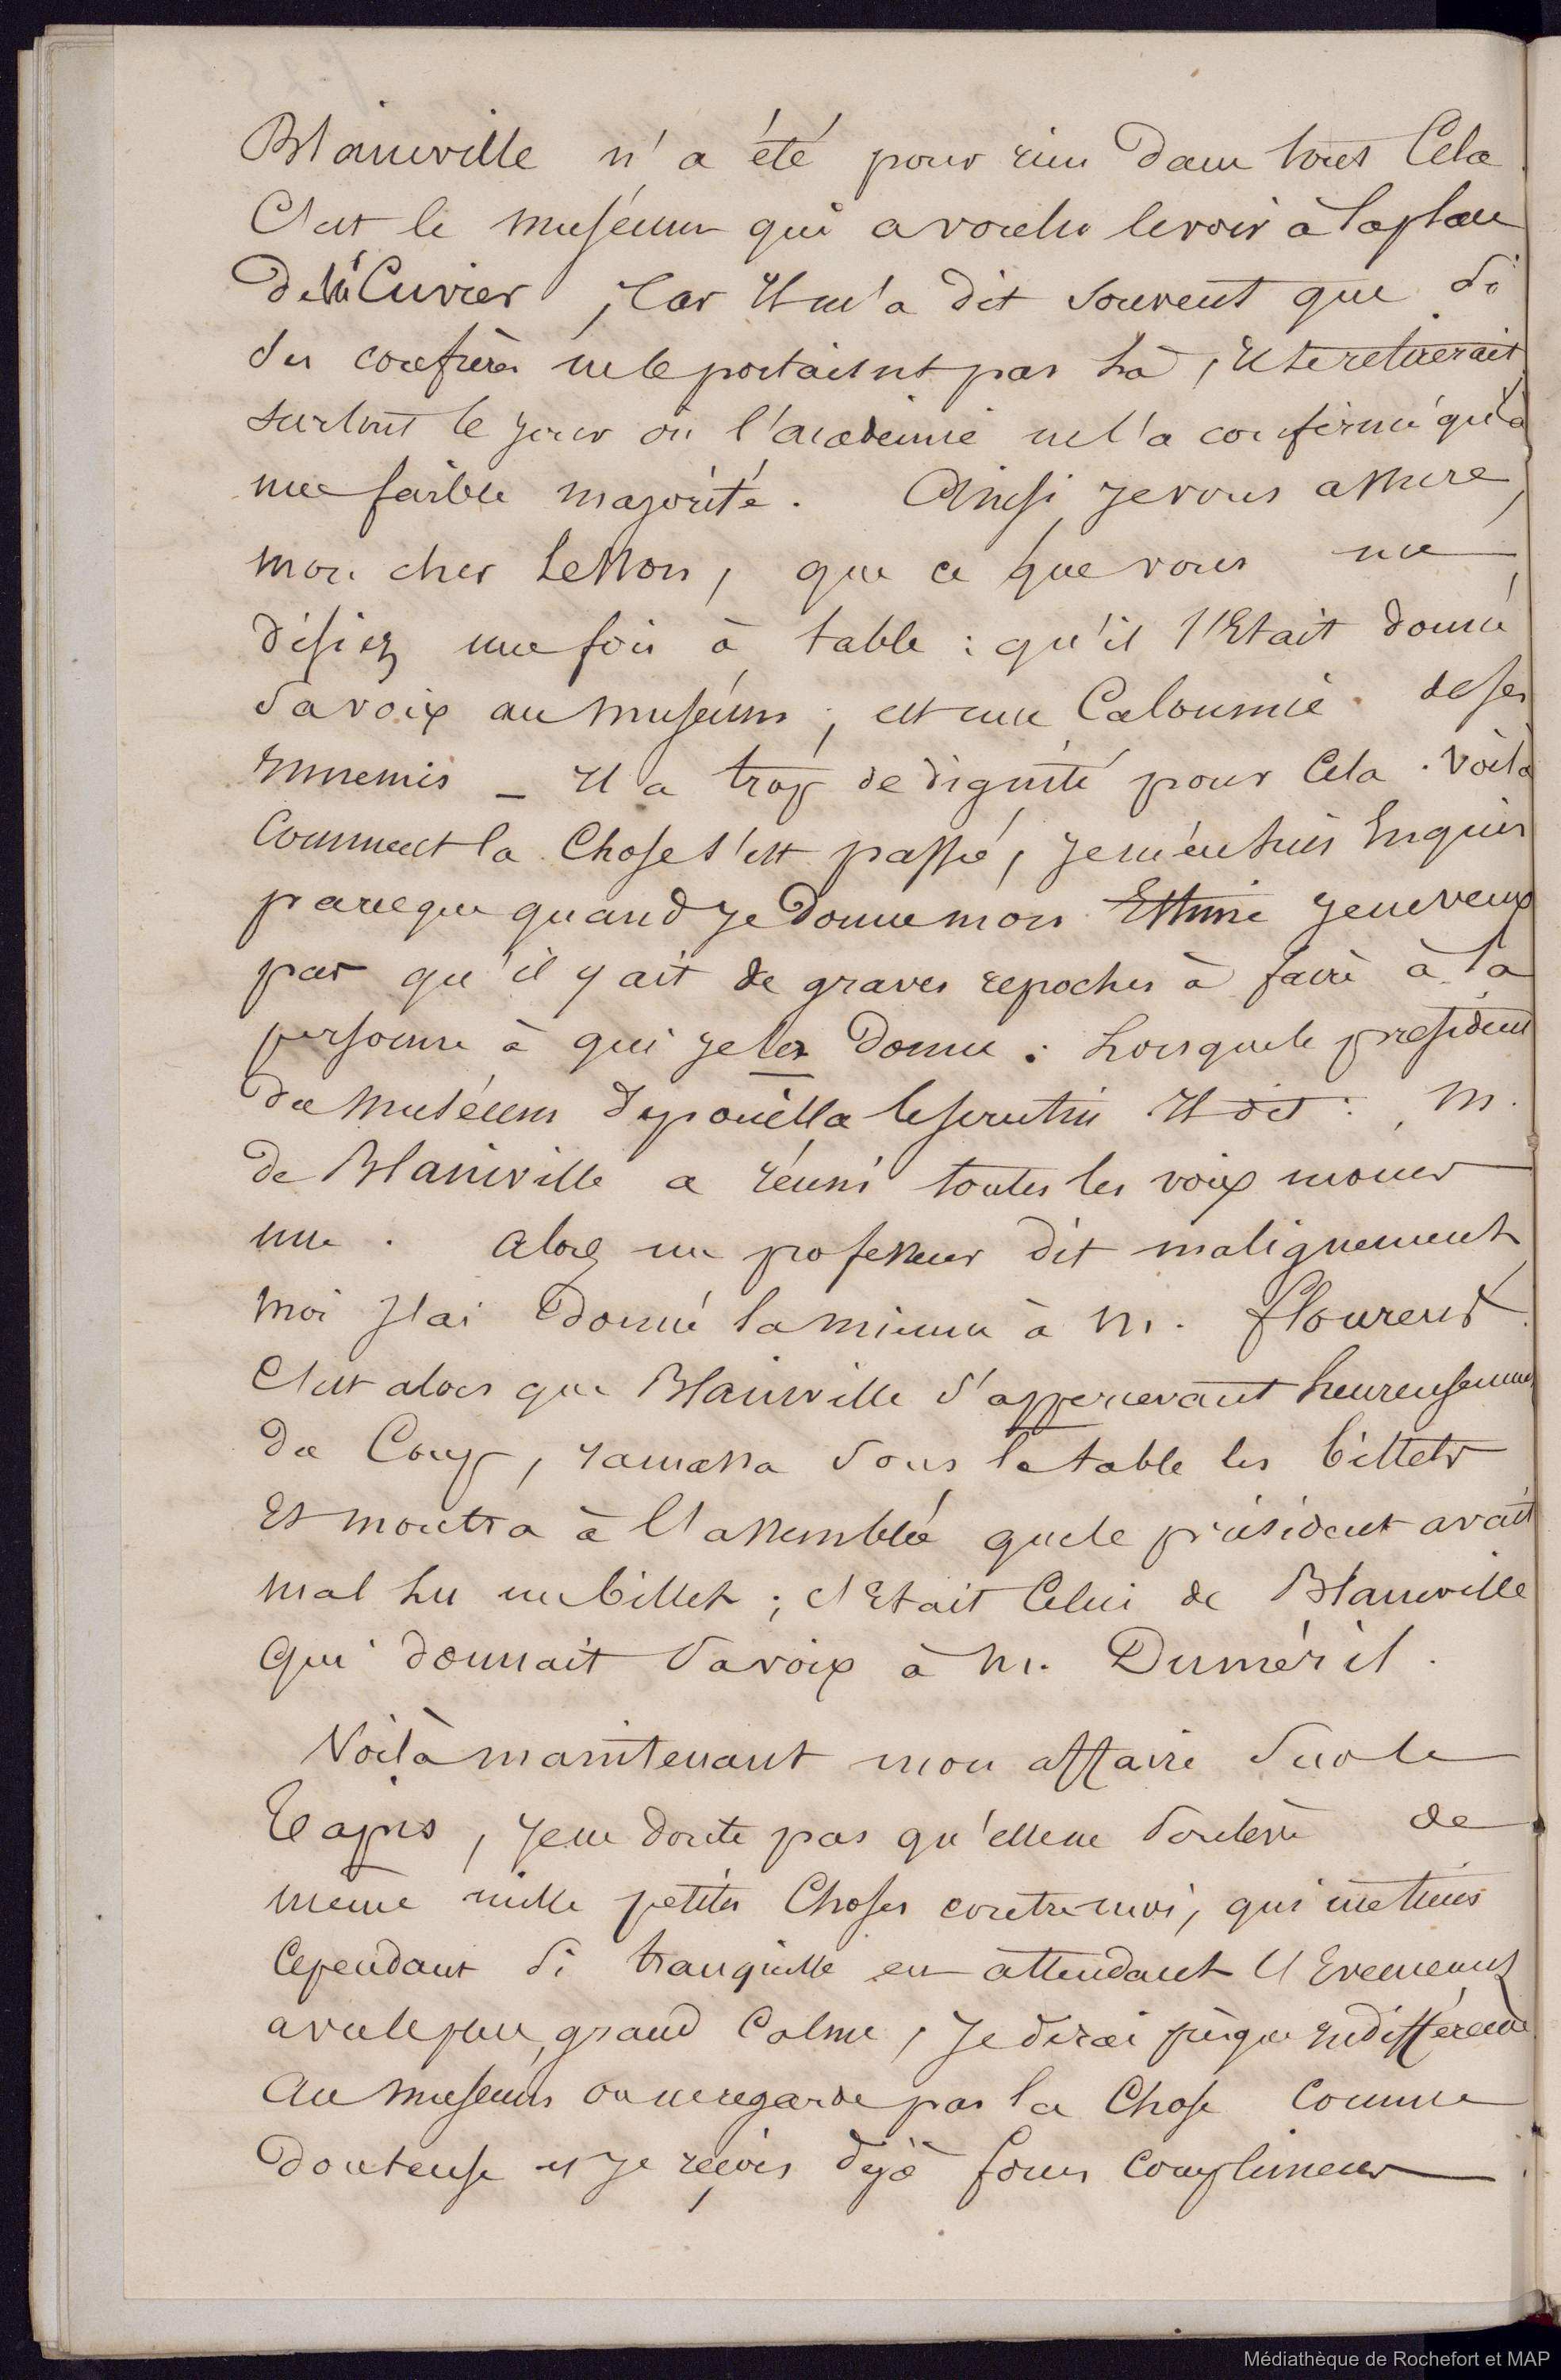 Blainville n'a été pour rien dans tout Cela
C'est le muséum qui a voulu le voir à la place
de M Cuvier, Car Il m'a dit souvent que si
ses confrères ne le portaient pas là, Il se retirerait
surtout le jour où l'académie ne l'a confirmé qu'à
une faible majorité. Ainsi je vous assure,
mon cher Lesson, que ce que vous me
disiez une fois à table : qu'il s'Etait donné
sa voix au muséum, est une Calomnie de ses
Ennemis _ Il a trop de dignité pour Cela. Voilà
Comment la Chose s'est passé, je m'en suis Enquis
parceque quand je Donne mon Estime je ne veux
pas qu'il y ait de graves repoches à faire à la
personne à qui je les Donne : Lorsque le president
du muséum depouilla le scrutin Il dit : M.
de Blainville a réuni toutes les voix moins
une. alors un professeur dit malignement
moi j'ai Donné la mienne à M. flourens.
C'est alors que Blainville s'appercevant heureusement
du Coup, ramassa sous la table les billets
Et montra à l'assemblée que le président avait
mal lu un billet ; c'Etait Celui de Blainville
qui donnait sa voix à M. Duméril.
Voilà maintenant mon affaire sur le
Tapis, je ne doute pas qu'elle ne soulève de
même mille petites Choses contre moi, qui me tiens
Cependant si tranquille en attendant l'Evenement
avec le plus grand Calme, je dirai presque Indifférence
Au museum on ne regarde pas la Chose Comme
Douteuse et je reçois déjà force complimens
Médiathèque de Rochefort et MAP